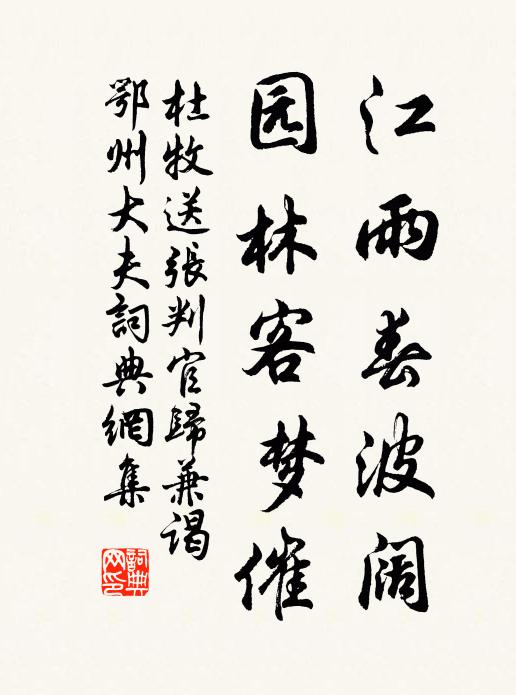 江雨春波阔
园林客梦催
杜牧送張判官歸兼謁
鄂州大夫詞典網集
詞典
网印